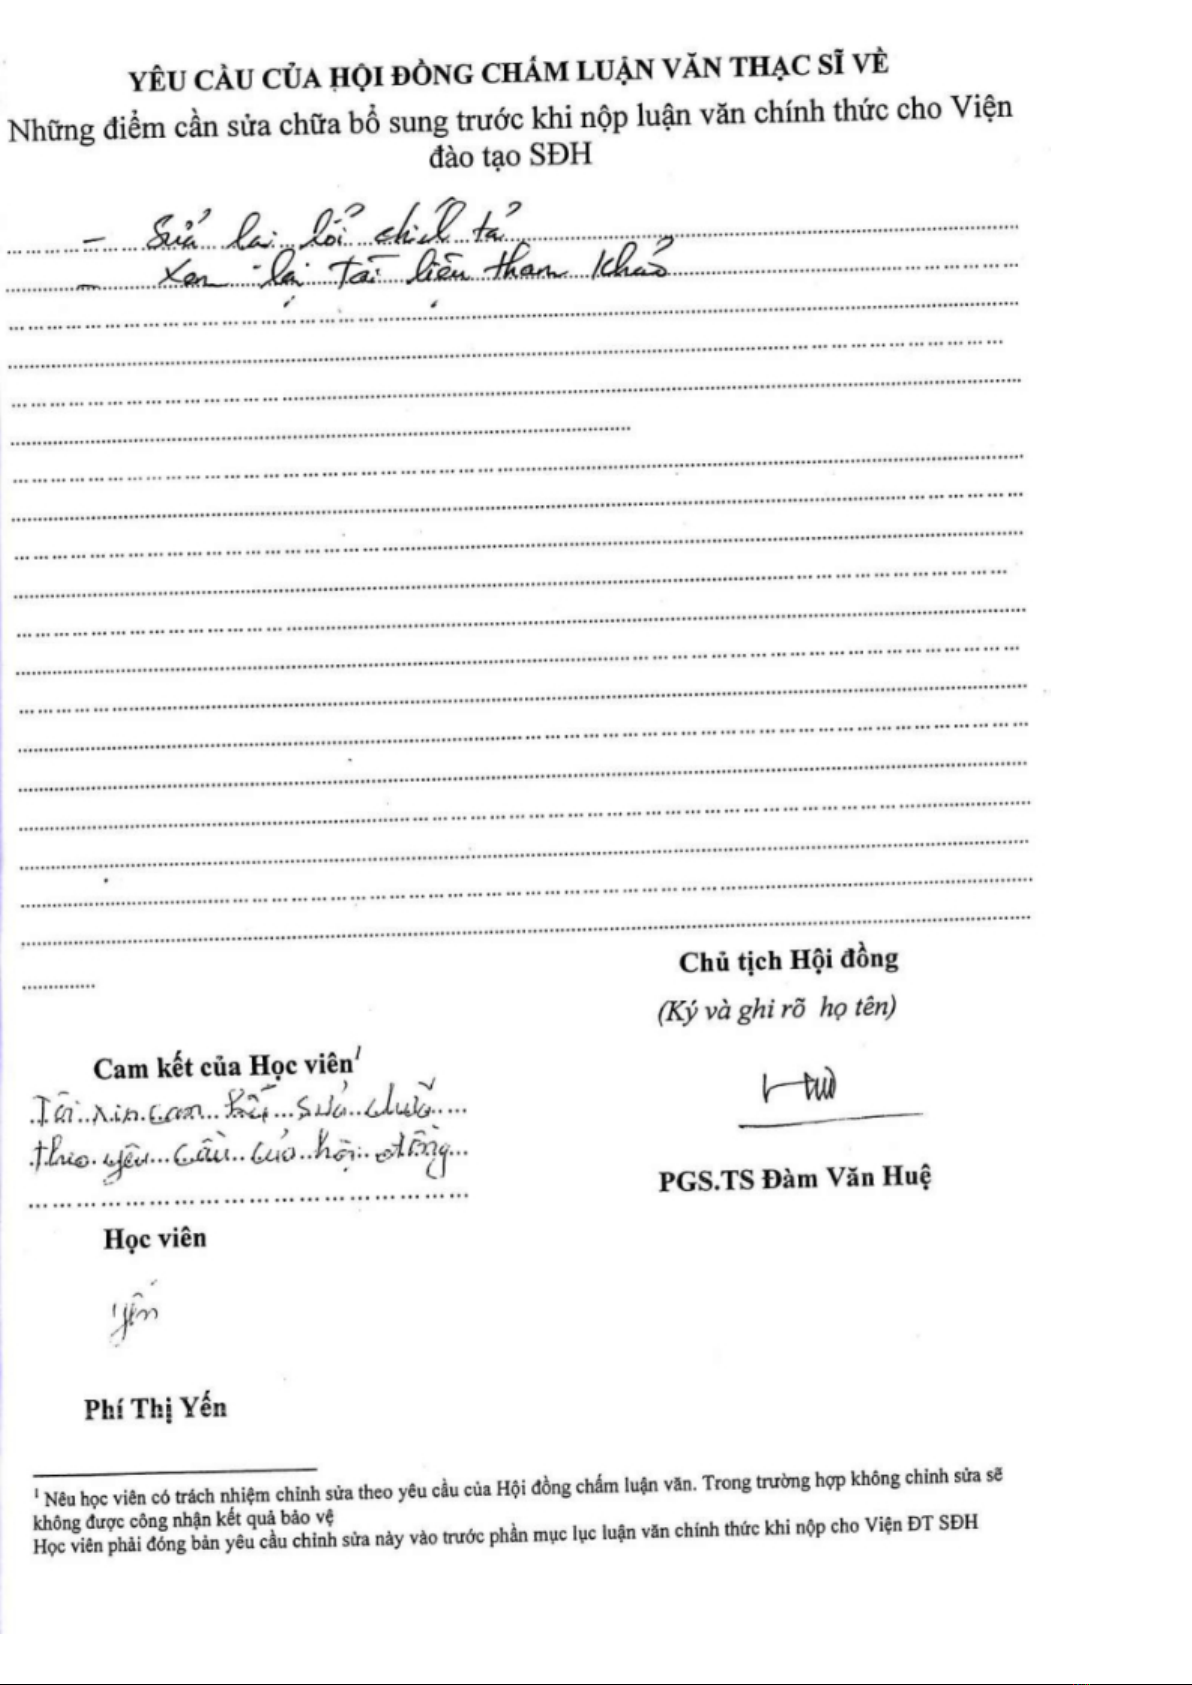 YÊU CẦU CỦA HỘI ĐỒNG CHẤM LUẬN VĂN THẠC SĨ VỀ
Những điểm cần sửa chữa bổ sung trước khi nộp luận văn chính thức cho Viện
đào tạo SĐH
- Sửa lại lỗi chính tả
- Xem lại tài liệu tham khảo
Chủ tịch Hội đồng
(Ký và ghi rõ họ tên)
Cam kết của Học viên¹
Tôi xin cam kết sửa chữa
theo yêu cầu của hội đồng
PGS.TS Đàm Văn Huệ
Học viên
Yến
Phí Thị Yến
¹ Nêu học viên có trách nhiệm chỉnh sửa theo yêu cầu của Hội đồng chấm luận văn. Trong trường hợp không chỉnh sửa sẽ
không được công nhận kết quả bảo vệ
Học viên phải đóng bản yêu cầu chỉnh sửa này vào trước phần mục lục luận văn chính thức khi nộp cho Viện ĐT SĐH